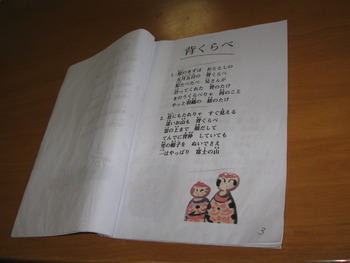 背くらべ
1. 柱のきずは おととしの
五月五日の 背くらべ
粽たべたべ 兄さんが
計ってくれた 背のたけ
きのうくらべりゃ 何のこと
やっと羽織の 紐のたけ
2. 柱にもたれりゃ すぐ見える
遠いお山も 背くらべ
雲の上まで 顔だして
てんでに背伸 していても
雪の帽子を ぬいでさえ
一はやっぱり 富士の山
3